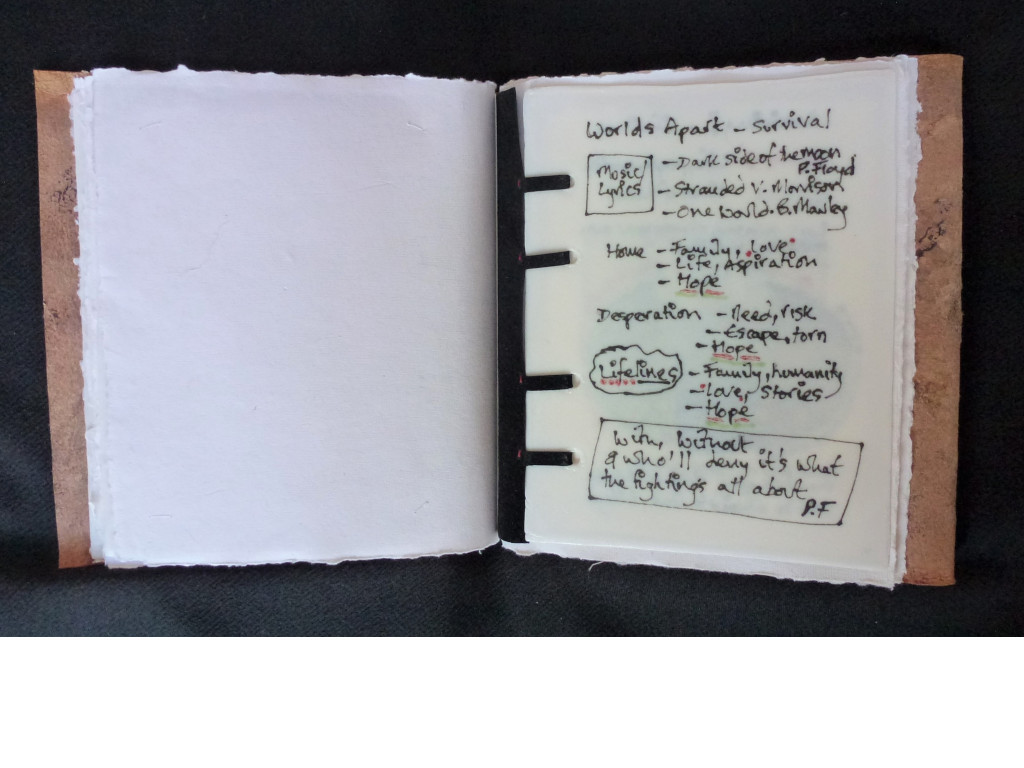 Worlds Apart - Survival
Music/ Lyrics
- Dark side of the moon P. Floyd
- Stranded V. Morrison
- One world. B. Marley
Home - Family, Love
- Life, Aspiration
- Hope
Desperation - Need, risk
- Escape, torn
- Hope
Lifelines - Family, humanity
- Love, Stories
- Hope
With, without
& who'll deny it's what
the fighting's all about
P.F